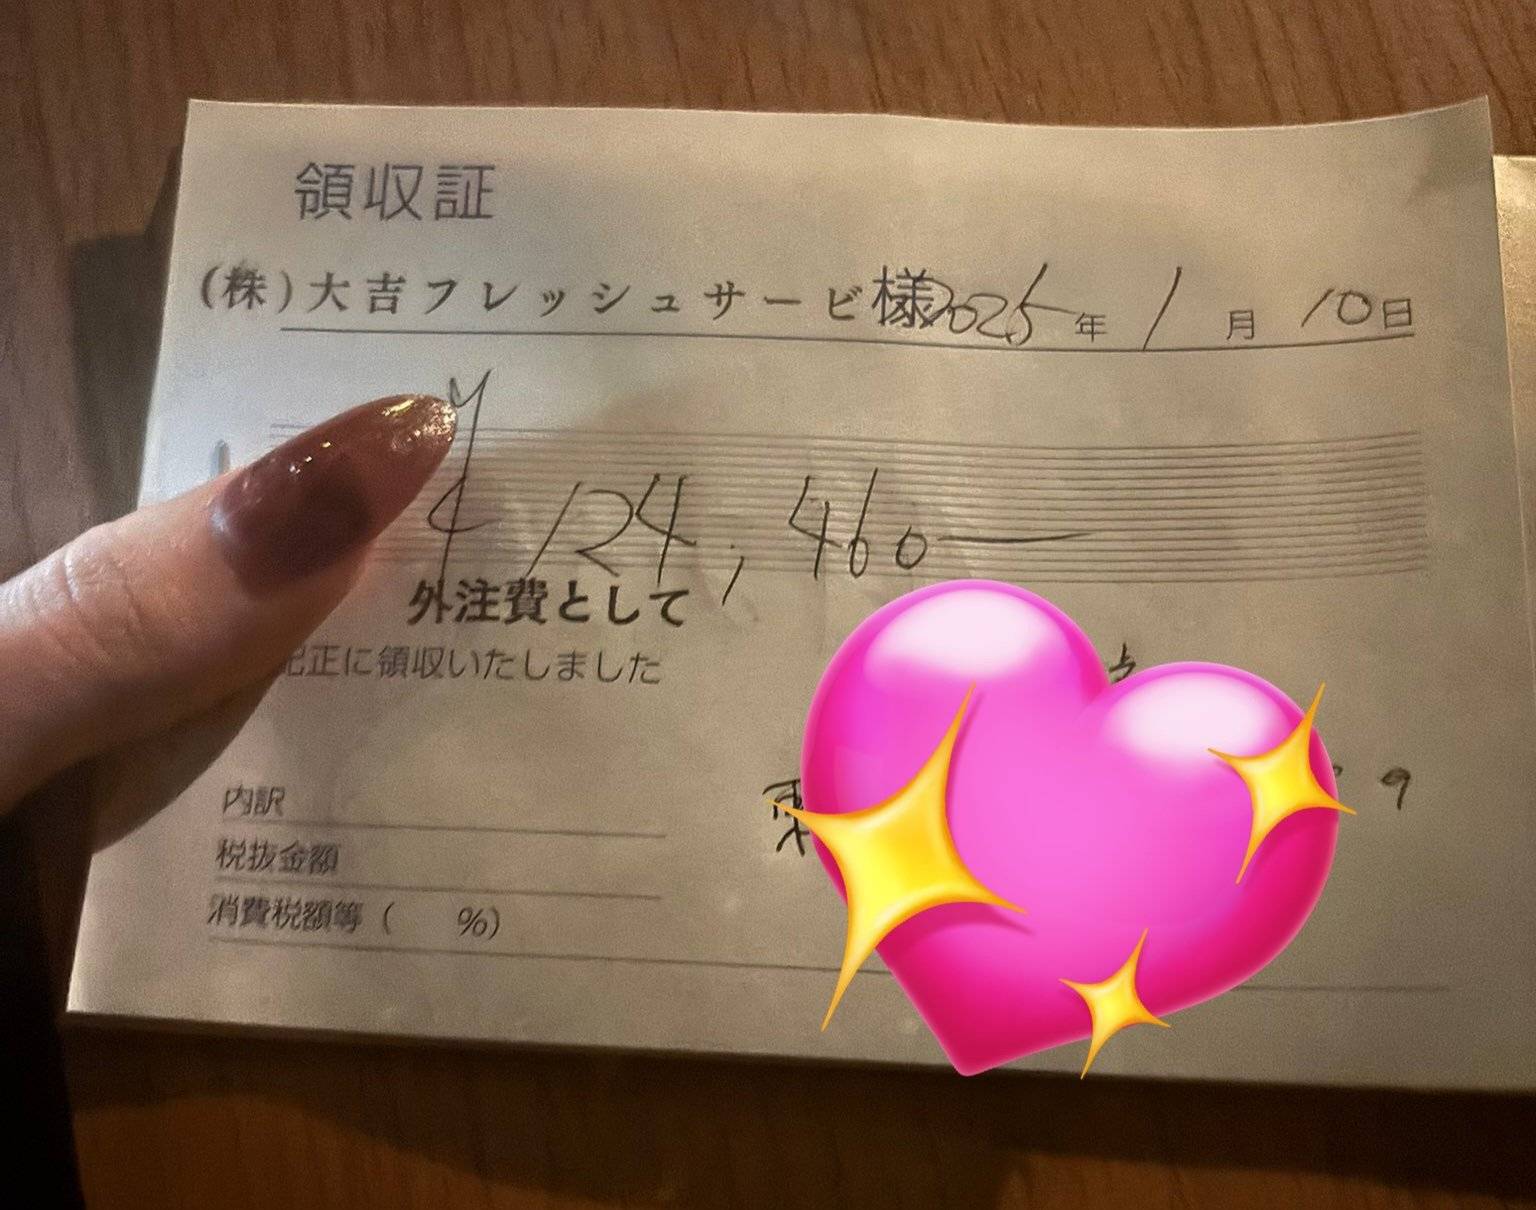 領収証
(株)大吉フレッシュサービ様 2025年 1月 10日
¥124,460―
外注費として
記正に領収いたしました
9
内訳
税抜金額
消費税額等 ( %)